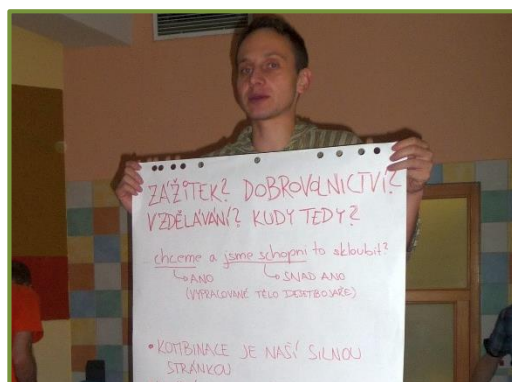 ZÁŽITEK? DOBROVOLNICTVÍ?
VZDĚLÁVÁNÍ? KUDY TEDY?
chceme a jsme schopni to skloubit?
↳ ANO ↳ SNAD ANO
(VYPRACOVANÉ TĚLO DESETBOJAŘE)
• KOMBINACE JE NAŠÍ SILNOU
STRÁNKOU